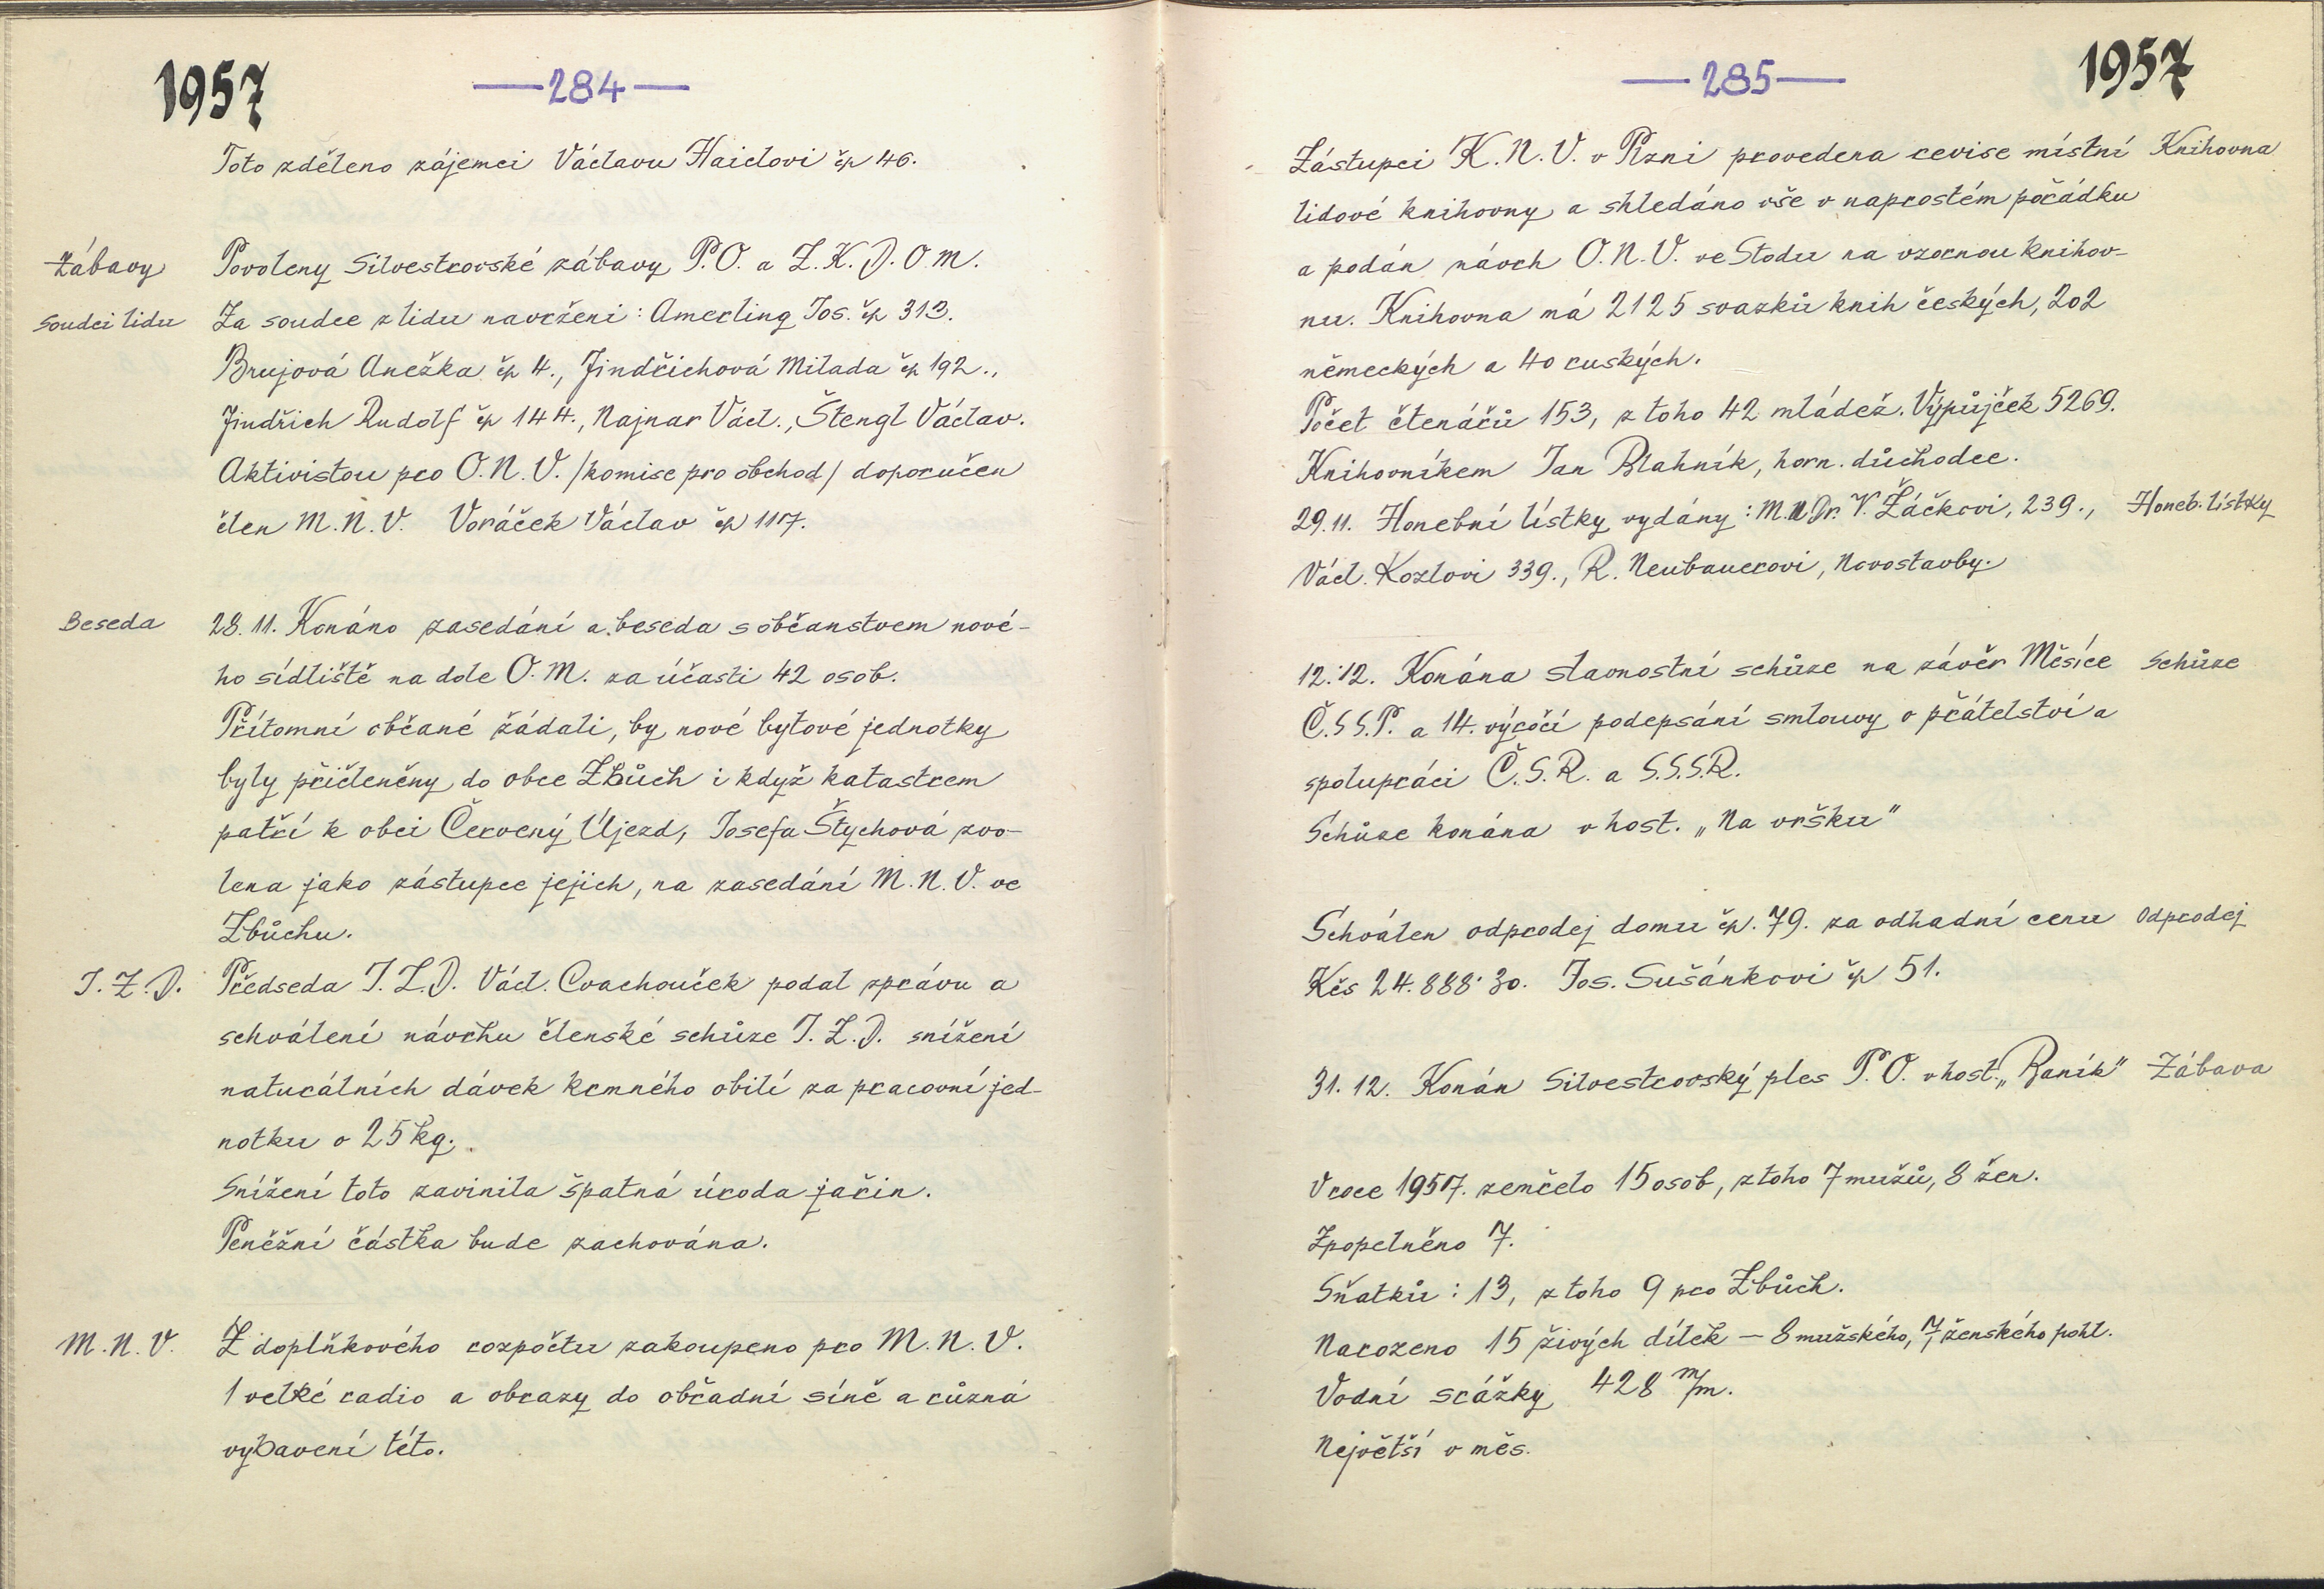 1957
—284—
Toto zděleno zájemci Václavu Haidlovi čp 46.
Zábavy Povoleny Silvestrovské zábavy P.O. a Z.K.D.O.M.
Soudci lidu Za soudce z lidu navrženi: Amerling Jos. čp 313.
Brujová Anežka čp 4., Jindřichová Milada čp 192.,
Jindřich Rudolf čp 144., Najnar Václ., Štengl Václav.
Aktivistou pro O.N.V. /komise pro obchod/ doporučen
člen M.N.V. Voráček Václav čp 117.
Beseda 28.11. Konáno zasedání a beseda s občanstvem nové-
ho sídliště na dole O.M. za účasti 42 osob.
Přítomní občané žádali, by nové bytové jednotky
byly přičleněny do obce Zbůch i když katastrem
patří k obci Červený Újezd, Josefa Štychová zvo-
lena jako zástupce jejich, na zasedání M.N.V. ve
Zbůchu.
J.Z.D. Předseda J.Z.D. Václ. Cvachouček podal zprávu a
schválení návrhu členské schůze J.Z.D. snížení
naturálních dávek krmného obilí za pracovní jed-
notku o 25 kg.
Snížení toto zavinila špatná úroda jařin.
Peněžní částka bude zachována.
M.N.V. Z doplňkového rozpočtu zakoupeno pro M.N.V.
1 velké radio a obrazy do obřadní síně a různá
vybavení této.
—285—
1957
Zástupci K.N.V. v Plzni provedena revise místní Knihovna
lidové knihovny a shledáno vše v naprostém pořádku
a podán návrh O.N.V. ve Stodu na vzornou knihov-
nu. Knihovna má 2125 svazků knih českých, 202
německých a 40 ruských.
Počet čtenářů 153, z toho 42 mládež. Výpůjček 5269.
Knihovníkem Jan Blahník, horn. důchodce.
29.11. Honební lístky vydány: M.U.Dr. V. Žáčkovi, 239., Honeb. lístky
Václ. Kozlovi 339., R. Neubauerovi, Novostavby.
12.12. Konána slavnostní schůze na závěr Měsíce Schůze
Č.S.S.P. a 14. výročí podepsání smlouvy o přátelství a
spolupráci Č.S.R. a S.S.S.R.
Schůze konána v host. „Na vršku"
Schválen odprodej domu čp. 79. za odhadní cenu Odprodej
Kčs 24.888·30. Jos. Sušánkovi čp 51.
31.12. Konán Silvestrovský ples P.O. v host. „Baník" Zábava
V roce 1957. zemřelo 15 osob, z toho 7 mužů, 8 žen.
Zpopelněno 7.
Sňatků: 13, z toho 9 pro Zbůch.
Narozeno 15 živých dítek — 8 mužského, 7 ženského pohl.
Vodní srážky 428 m/m.
Největší v měs.